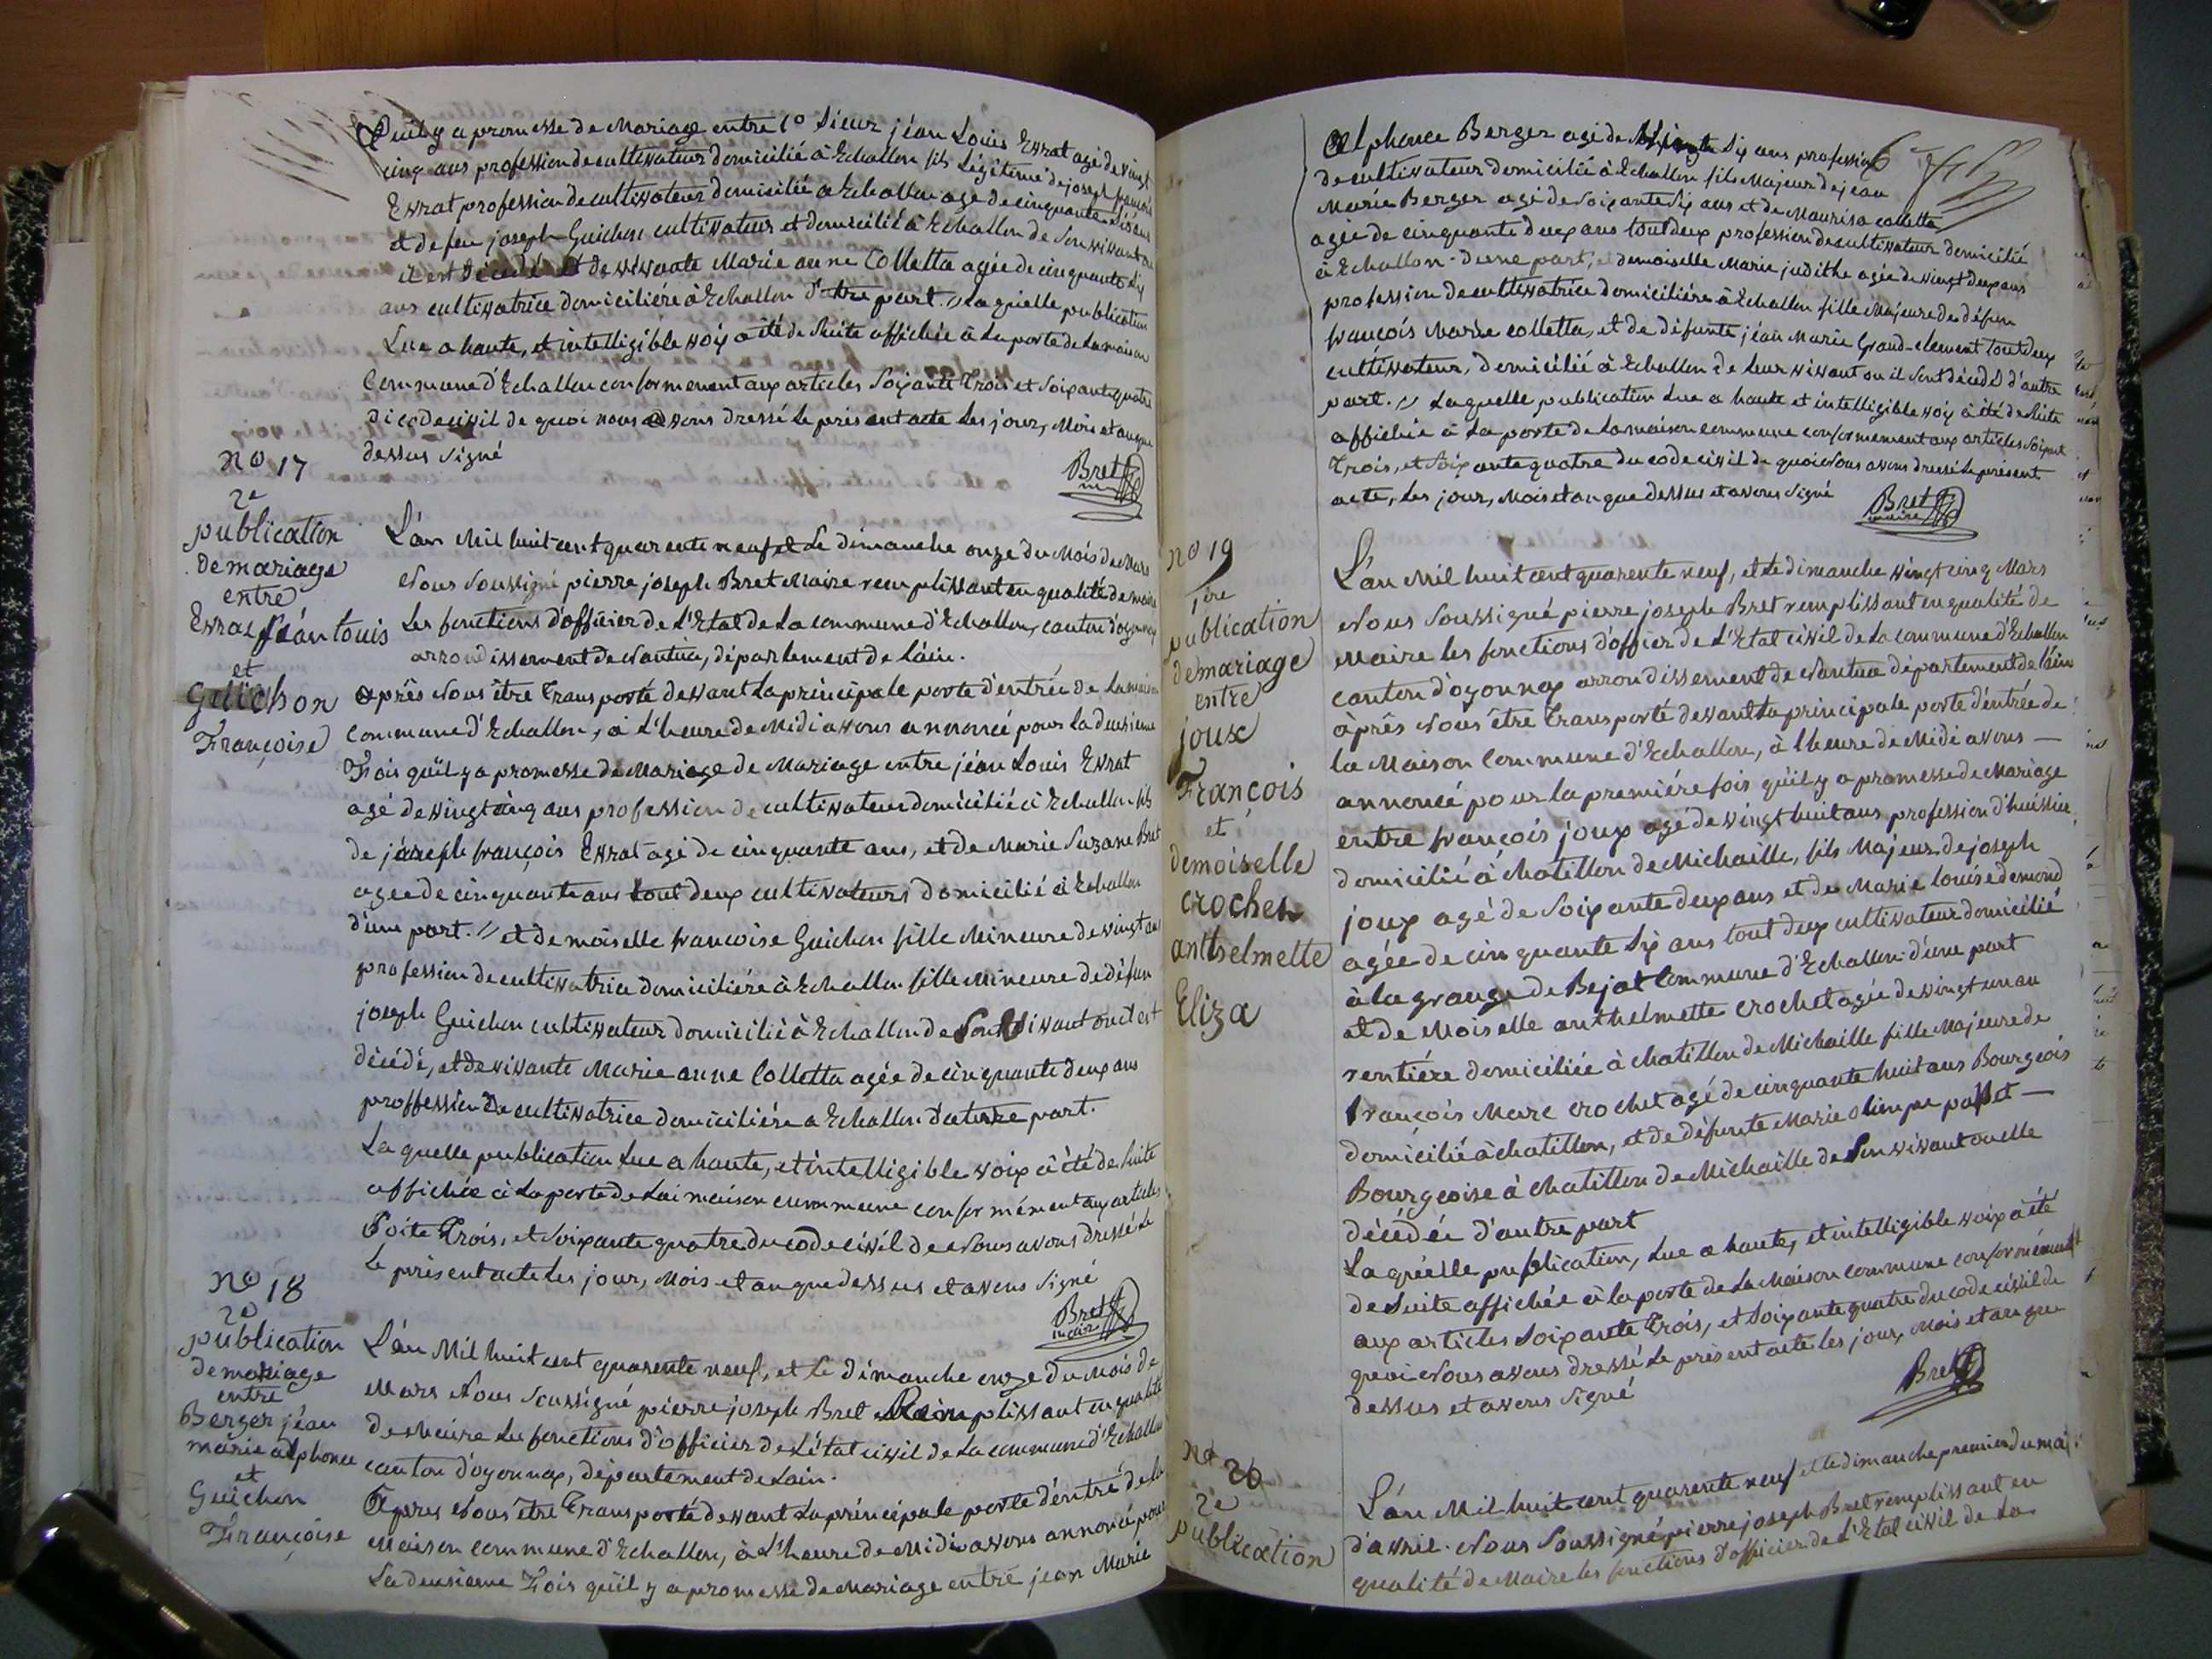 quil y a promesse de Mariage entre 1o Sieur jéan Louis Evrat agé de vingt
cinq ans profession de cultivateur domicilié à Echallon fils Légitime de joseph françois
Evrat profession de cultivateur domicilié a Echallon agé de cinquante
et de feu joseph Guichon cultivateur et domicilié à Echallon de Son vivant ou
il est décédé et de vivante Marie anne Colletta agée de cinquante Six
ans cultivatrice domiciliére à Echallon d'atre part. // La quelle publication
Lue a haute, et intelligible voix a été de Suite affichée à La porte de La maison
Commune d'Echallon conformement aux articles Soixante Trois et Soixante quatre
di code civil de quoi nous avons dressé le présent acte Les jour, Mois et an que
dessus Signé
Bret
no 17
2e
publication
de mariage
entre
Evrat jéan Louis
et
Guichon
Françoise
L'an Mil huit cent quarente neuf et Le dimanche onze du Mois de Mars
Nous Soussigné pierre joseph Bret Maire remplissant en qualité de maire
Les fonctions d'officier de L'Etat de La commune d'Echallon, canton d'oyonnax
arrondissement de Nantua, département de L'ain.
Après Nous être Transporté devant La principale porte d'entrée de La maison
Commune d'Echallon, à L'heure de Midi avons annoncé pour La deusieme
Fois quil y a promesse de Mariage de Mariage entre jéan Louis Evrat
agé de vingt cinq ans profession de cultivateur domicilié à Echallon fils
de joseph françois Evrat agé de cinquante ans, et de Marie Suzane Bret
agee de cinquante ans tout deux cultivateurs domicilié à Echallon
d'une part. // et demoiselle francoise Guichon fille Mineure de vingt ans
profession de cultivatrice domiciliére à Echallon fille Mineure de défun
joseph Guichon cultivateur domicilié à Echallon de Son Vivant ou il est
décédé, et de vivante Marie anne Colletta agée de cinquante deux ans
proffession de cultivatrice domiciliére a Echallon d'atre part.
La quelle publication Lue a haute, et intelligible voix à été de Suite
affichée à La porte de Lai maison commune conformément aux articles
Soite Trois, et Soixante quatre du code civil de Nous avons dressé Le
Le présent acte Les jour, Mois et an que dessus et avons Signé
Bret
maire
no 18
2e
publication
de mariage
entre
Berger jéan
marie alphonce
et
Guichon
Françoise
L'an Mil huit cent quarente neuf, et Le dimanche onze du Mois de
Mars Nous Soussigné pierre joseph Bret Remplissant en qualité
de Maire Les fonctions d'officier de L'état civil de La commune d'Echallon
canton d'oyonnax, département de Lain.
Apres Nous être Transporté devant La principale porte d'entré de La
Maison commune d'Echallon, à L'heure de Midi avons annoncé pour
La deusieme Fois quil y a promesse de Mariage entre jean Marie
Alphonce Berger agé de Six ans profession 6
de cultivateur domicilié à Echallon fils Majeur de jean
Marie Berger agé de Soixante Six ans et de Maurisa colletta
agée de cinquante deux ans tout deux profession de cultivateur domicilié
à Echallon d'une part, et demoiselle Marie judithe agée de vingt deux ans
profession de cultivatrice domiciliére à Echallon fille Majeure de défun
françois Marie colletta, et de défunte jéan Marie Grand-clement tout deux
cultivateur, domicilié à Echallon de Leur vivant ou il Sont décédé d'autre
part. // Laquelle publication Lue a haute et intelligible voix à été de Suite
affichée à La porte de La maison commune conformement aux articles Soixant
Trois, et Soixante quatre du code civil de quoi Nous avons dressé Le présent
acte, Les jour, Mois et an que dessus et avons Signé
Bret
maire
no 19
1ere
publication
de mariage
entre
joux
François
et
demoiselle
crochet
anthelmette
Eliza
L'an Mil huit cent quarente neuf, et Le dimanche vingt cinq Mars
Nous Soussigné pierre joseph Bret remplissant en qualité de
Maire les fonctions d'offier de L'Etat civil de La commune d'Echallon
canton d'oyonnax arrondissement de Nantua département de l'ain
àprès Nous être Transporté devant La principale porte d'entrée de
la Maison Commune d'Echallon, à l'heure de Midi avons —
annoncé pour la premiére fois quil y a promesse de Mariage
entre françois joux agé de vingt huit ans profession d'huissier
domicilié à chatillon de Michaille, fils Majeur de joseph
joux agé de Soixante deux ans et de Marie louise demond
agée de cinquante Six ans tout deux cultivateur domicilié
à la grange de Bejat Commune d'Echallon d'une part
et de Moiselle anthelmette crochet agée de vingt un an
rentiére domiciliée à chatillon de Michaille fille Majeure de
François Marc crochet agé de cinquante huit ans Bourgeois
domicilié à chatillon, et de défunte Marie Olimpe —
Bourgeoise à chatillon de Michaille de Son vivant ou elle
décédée d'autre part
La quelle publication, Lue a haute, et intelligible voix à été
de Suite affichée à la porte de La Maison commune conformément
aux articles Soixante Trois, et Soixante quatre du code civil de
quoi Nous avons dressé Le présent acte les jour, Mois et an que
dessus et avons Signé
Bret
no 20
2e
publication
L'an Mil huit cent quarente neuf et le dimanche premier du moi
d'avril. Nous Soussigné pierre joseph Bret remplissant en
qualité de Maire les fonctions d'officier de L'Etat civil de La